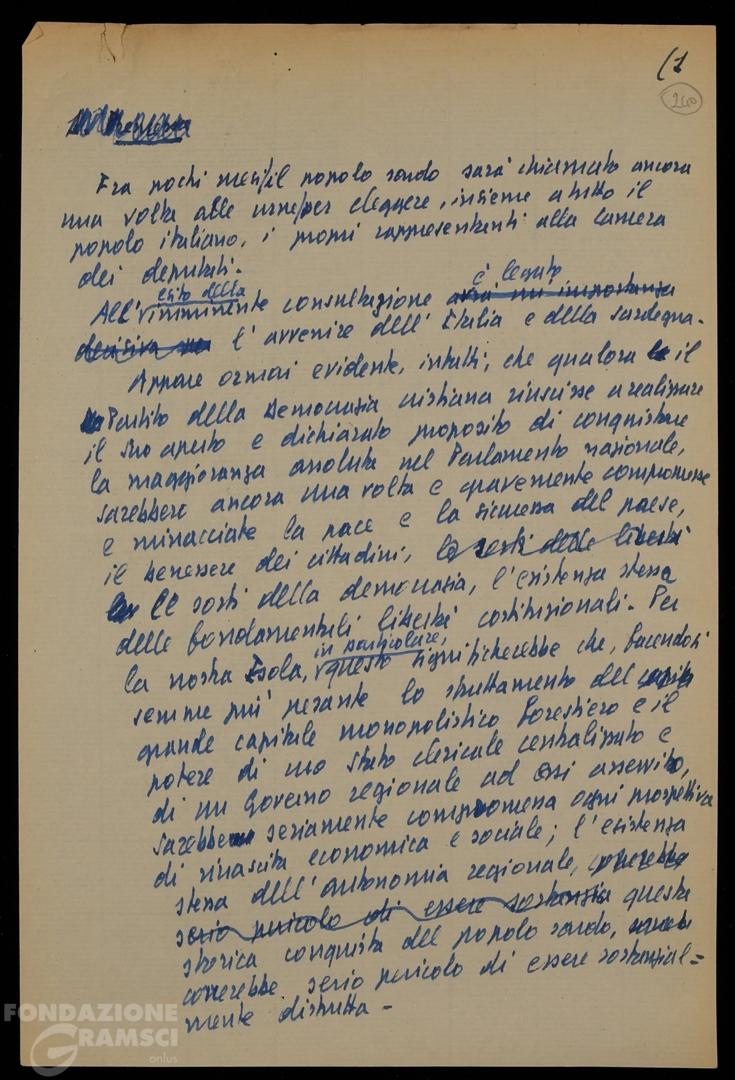 (1
240
Fra pochi mesi, il popolo sardo sarà chiamato ancora
una volta alle urne per eleggere, insieme a tutto il
popolo italiano, i propri rappresentanti alla Camera
dei deputati.
esito della è legato
All'imminente consultazione avrà un'importanza
decisiva l'avvenire dell'Italia e della Sardegna.
Appare ormai evidente, infatti, che qualora il
Partito della Democrazia cristiana riuscisse a realizzare
il suo aperto e dichiarato proposito di conquistare
la maggioranza assoluta nel Parlamento nazionale,
sarebbero ancora una volta e gravemente compromesse
e minacciate la pace e la sicurezza del paese,
il benessere dei cittadini, le sorti delle libertà
le sorti della democrazia, l'esistenza stessa
delle fondamentali libertà costituzionali. Per
in particolare,
la nostra Isola, questo significherebbe che, facendosi
sempre più pesante lo sfruttamento del
grande capitale monopolistico forestiero e il
potere di uno Stato clericale centralizzato e
di un Governo regionale ad essi asservito,
sarebbe seriamente compromessa ogni prospettiva
di rinascita economica e sociale; l'esistenza
stessa dell'autonomia regionale, correrebbe
serio pericolo di essere sostanzia questa
storica conquista del popolo sardo,
correrebbe serio pericolo di essere sostanzial=
mente distrutta –
FONDAZIONE
GRAMSCI
onlus